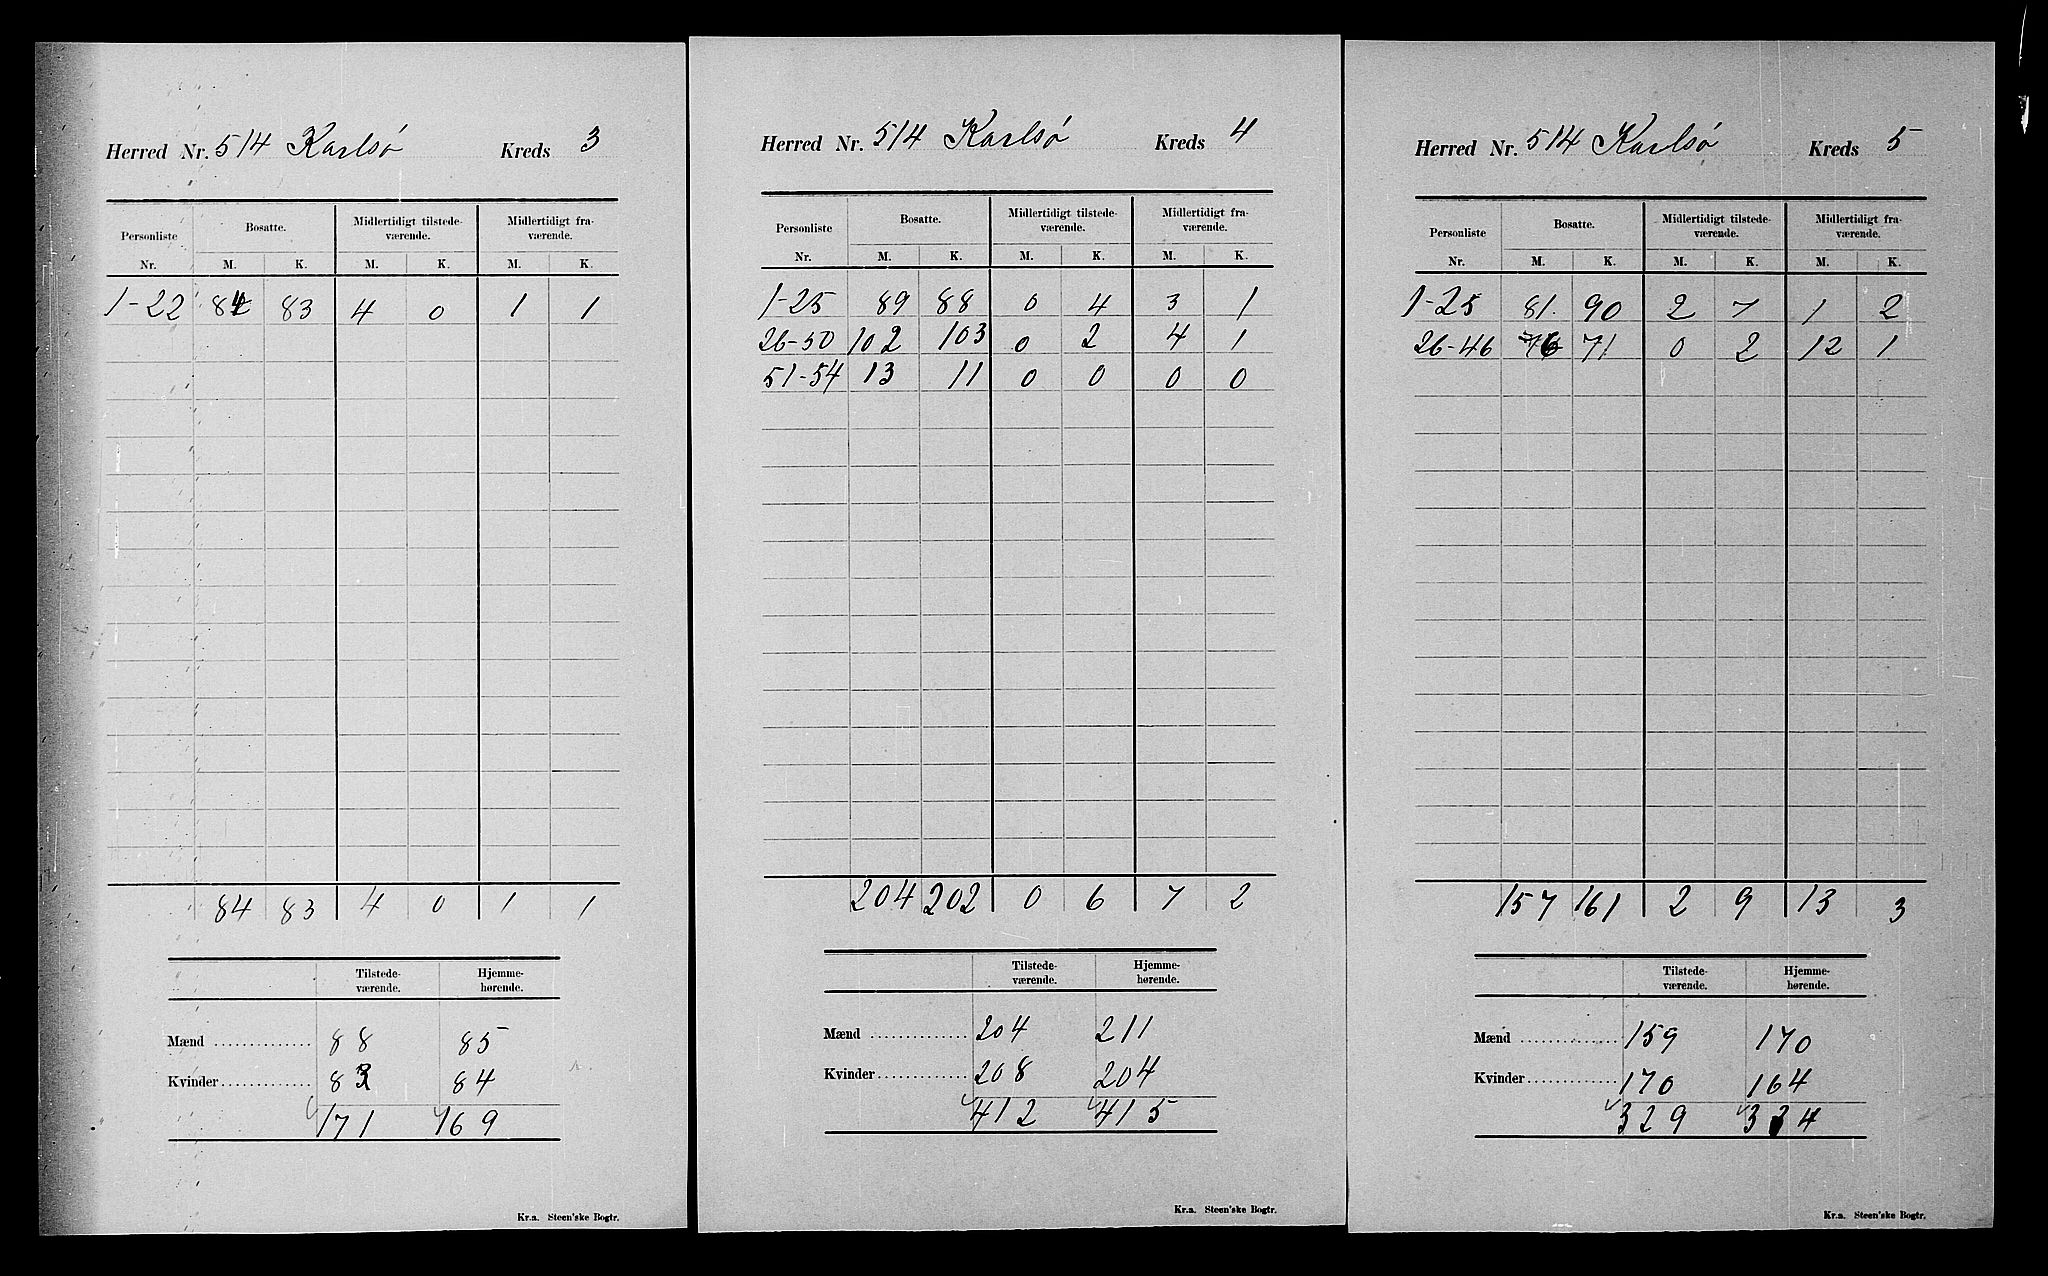 Herred Nr. 514 Karlsø Kreds 3
Personliste Bosatte. Midlertidigt tilstede- Midlertidigt fra-
værende. værende.
Nr. M. K. M. K. M. K.
1-22 84 83 4 0 1 1
84 83 4 0 1 1
Tilstede- Hjemme-
værende. hørende.
Mænd 88 85
Kvinder 83 84
171 169
Kr.a. Steen'ske Bogtr.
Herred Nr. 514 Karlsø Kreds 4
Personliste Bosatte. Midlertidigt tilstede- Midlertidigt fra-
værende. værende.
Nr. M. K. M. K. M. K.
1-25 89 88 0 4 3 1
26-50 102 103 0 2 4 1
51-54 13 11 0 0 0 0
204 202 0 6 7 2
Tilstede- Hjemme-
værende. hørende.
Mænd 204 211
Kvinder 208 204
412 415
Kr.a. Steen'ske Bogtr.
Herred Nr. 514 Karlsø Kreds 5
Personliste Bosatte. Midlertidigt tilstede- Midlertidigt fra-
værende. værende.
Nr. M. K. M. K. M. K.
1-25 81. 90 2 7 1 2
26-46 76 71 0 2 12 1
157 161 2 9 13 3
Tilstede- Hjemme-
værende. hørende.
Mænd 159 170
Kvinder 170 164
329 334
Kr.a. Steen'ske Bogtr.